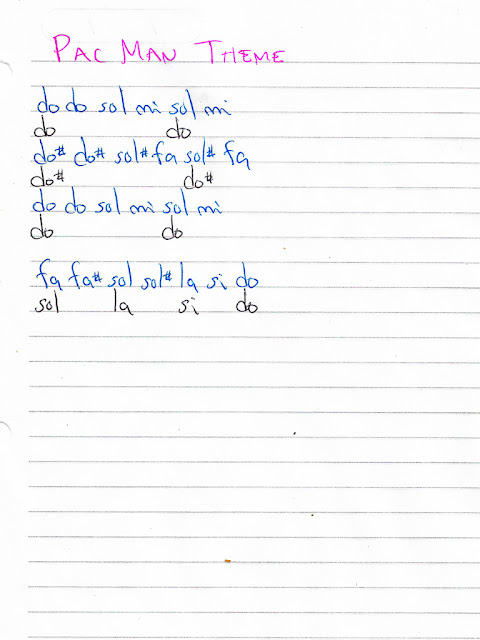 PAC MAN THEME
do do sol mi sol mi
do do
do# do# sol# fa sol# fa
do# do#
do do sol mi sol mi
do do
fa fa# sol sol# la si do
sol la si do